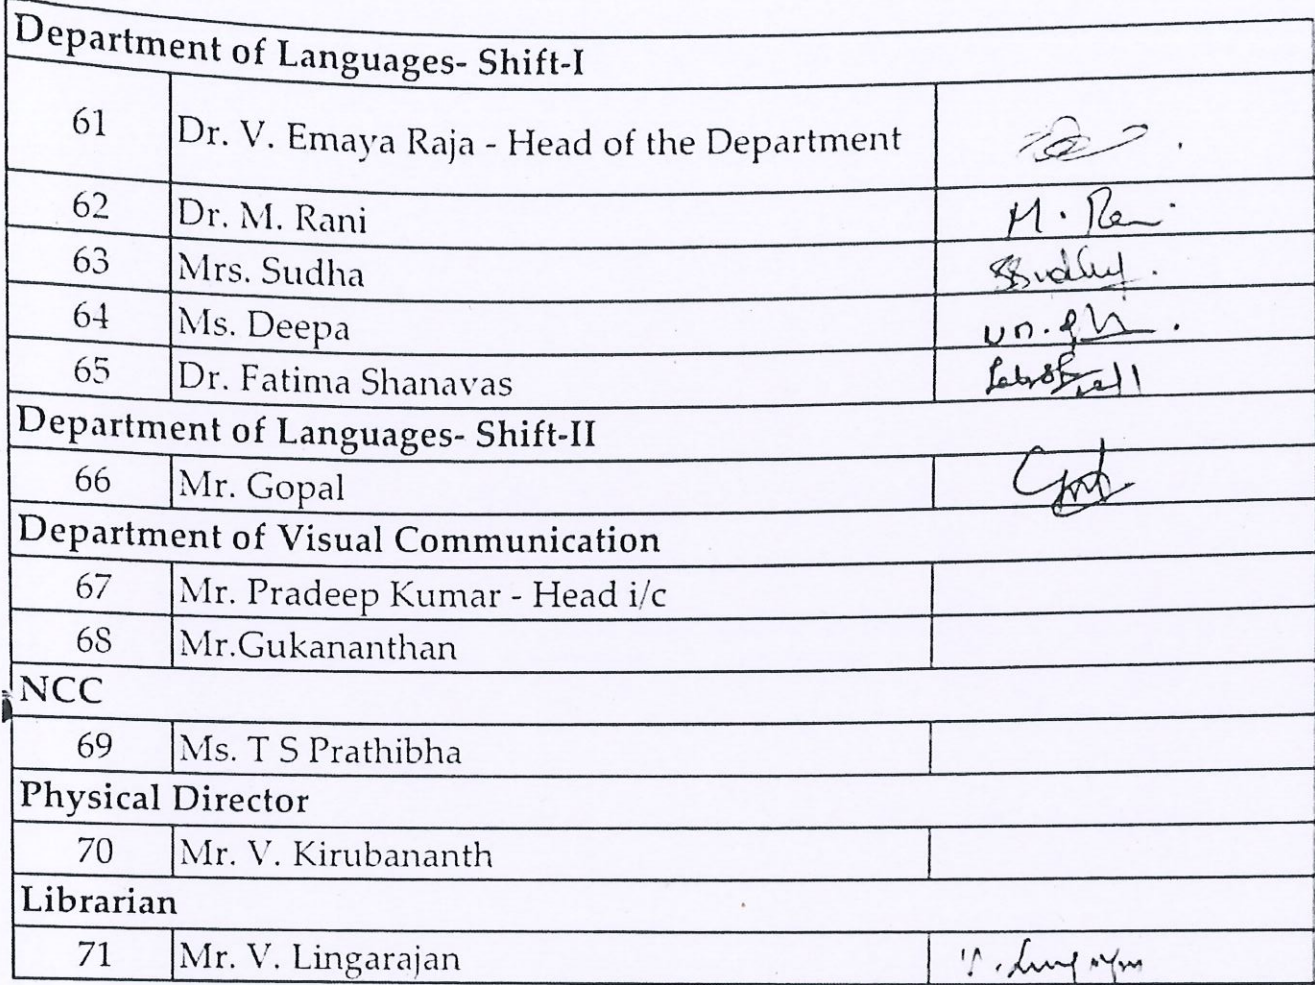 Department of Languages- Shift-I
61 Dr. V. Emaya Raja - Head of the Department
62 Dr. M. Rani M. Rani
63 Mrs. Sudha
64 Ms. Deepa
65 Dr. Fatima Shanavas
Department of Languages- Shift-II
66 Mr. Gopal
Department of Visual Communication
67 Mr. Pradeep Kumar - Head i/c
68 Mr.Gukananthan
NCC
69 Ms. T S Prathibha
Physical Director
70 Mr. V. Kirubananth
Librarian
71 Mr. V. Lingarajan